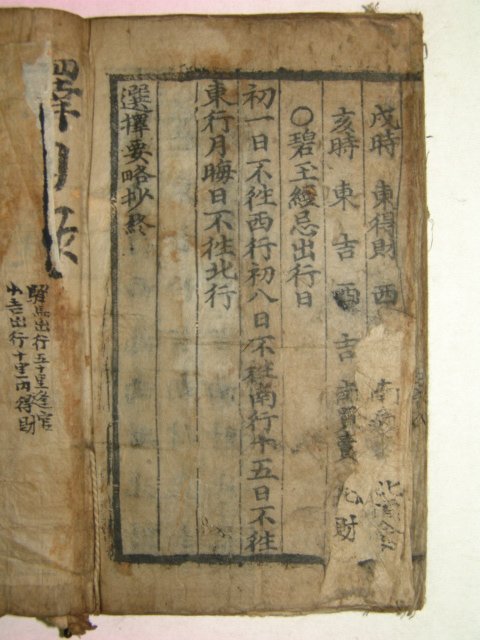 戌時 東得財 西 南 北
亥時 東吉 西吉 南 北 財
○碧玉經忌出行日
初一日不徃西行初八日不徃南行十五日不徃
東行月晦日不徃北行
選擇要略抄終
擇日
驛馬出行五十里逢官
小吉出行十里內得財